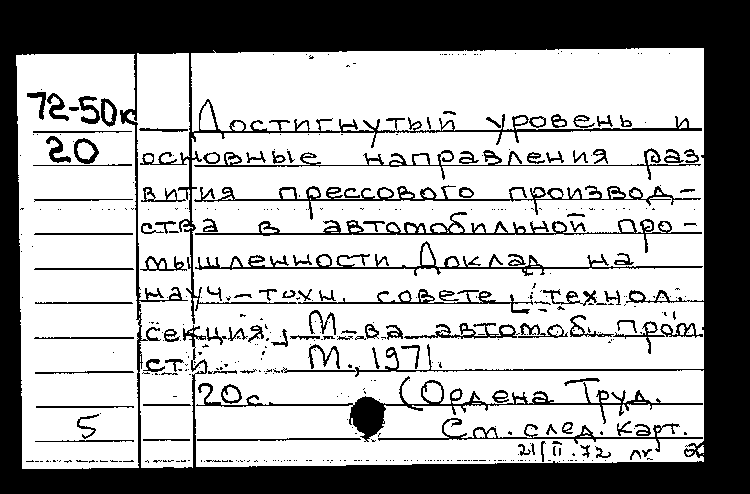 72-50к
20
Достигнутый уровень и
основные направления раз-
вития прессового производ-
ства в автомобильной про-
мышленности. Доклад на
науч.-техн. совете [технол.
секция] М-ва автомоб. пром-
сти М., 1971.
20с. (Ордена Труд.
5 См. след. карт.
21/II.72